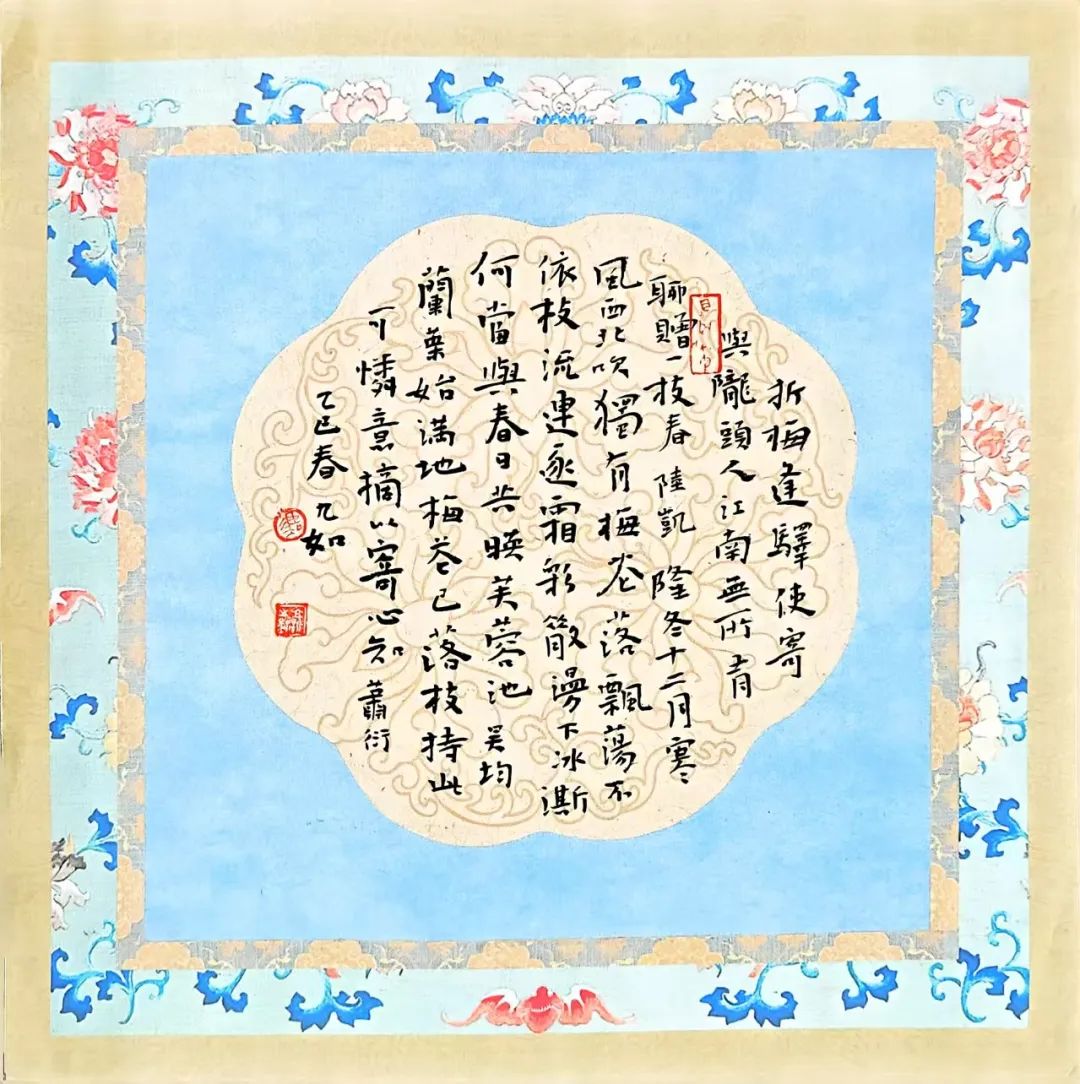 折梅逢驛使寄
與隴頭人江南無所有
聊贈一枝春 陸凱 隆冬十二月寒
風西北吹獨有梅花落飄蕩不
依枝流連逐霜彩散漫下冰澌
何當與春日共映芙蓉池 吴均
蘭葉始滿地梅花已落枝持此
可憐意摘以寄心知 蕭衍
乙巳春 九如